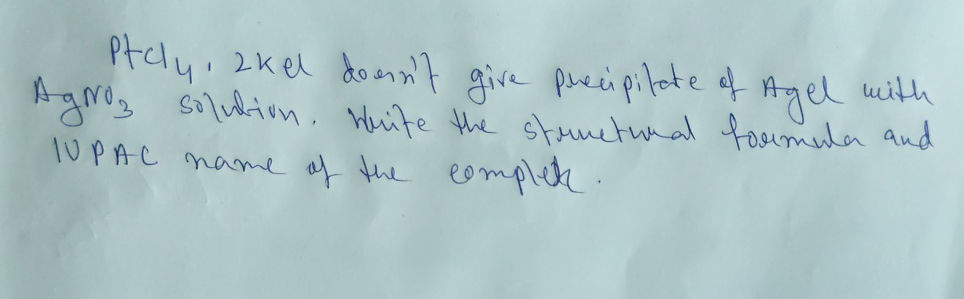 PtCl4, 2KCl doesn't give precipitate of AgCl with
AgNO3 solution. Write the structural formula and
IUPAC name of the complex.